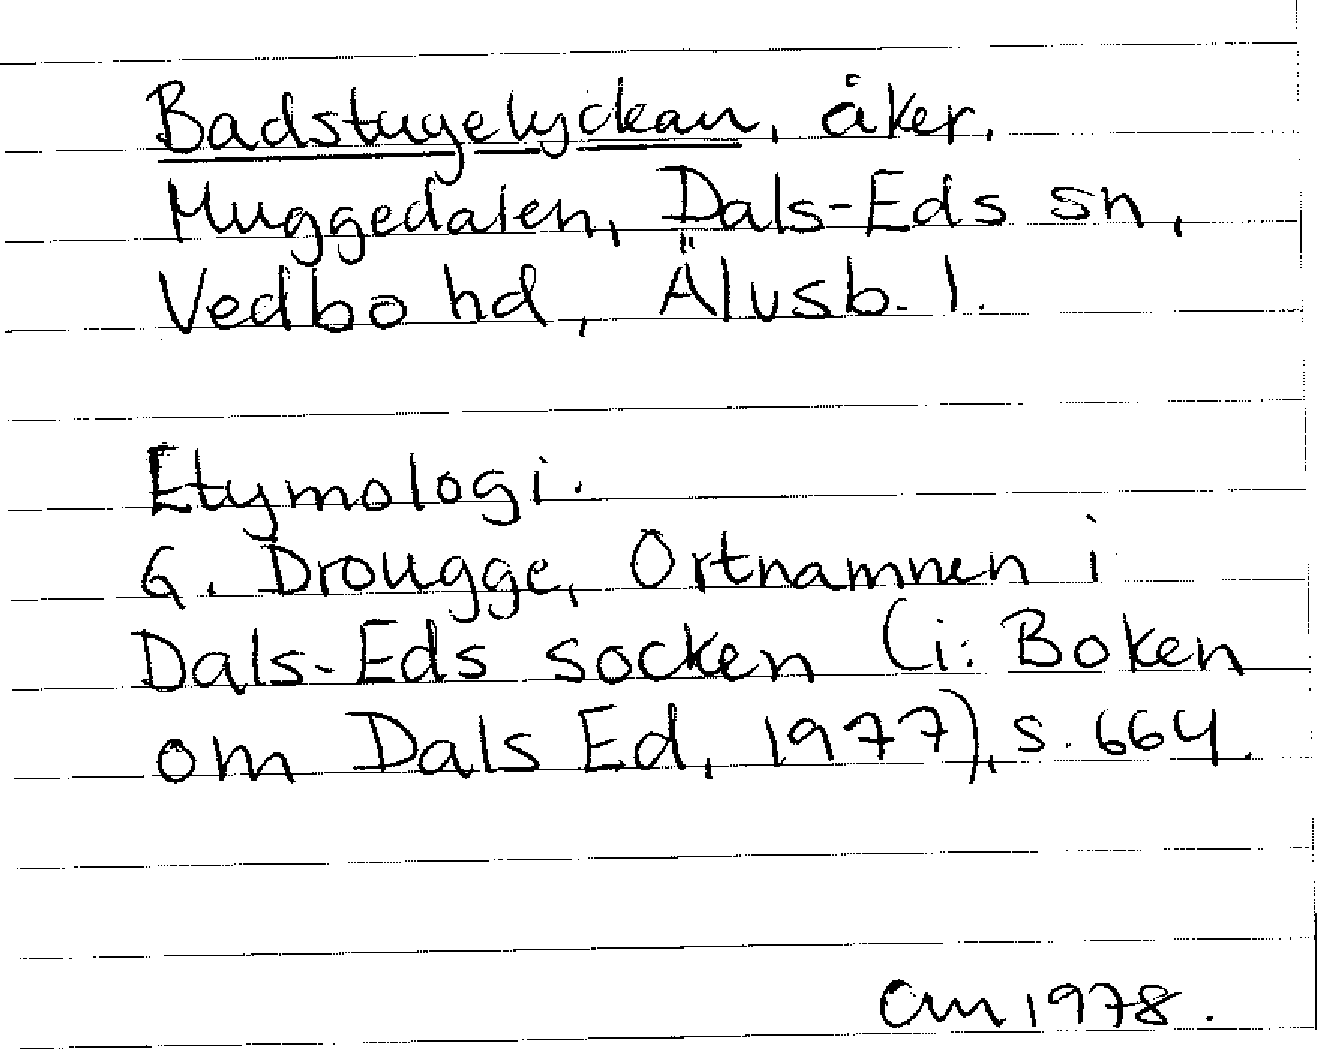 Badstugelyckan, åker,
Muggedalen, Dals-Eds sn,
Vedbo hd, Älvsb. l.
Etymologi.
G. Drougge, Ortnamnen i
Dals-Eds socken (i: Boken
om Dals Ed, 1977), s. 664.
1978.